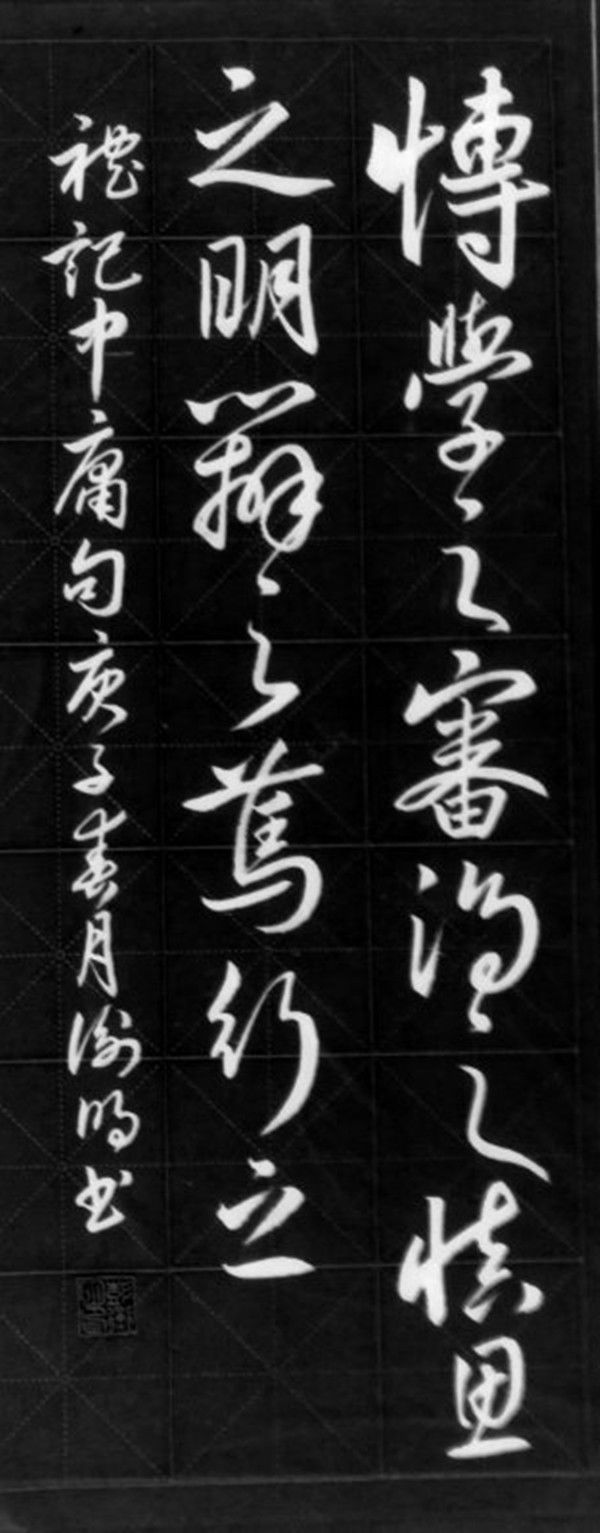 博學之審問之慎思
之明辨之篤行之
禮記中庸句庚子春月书